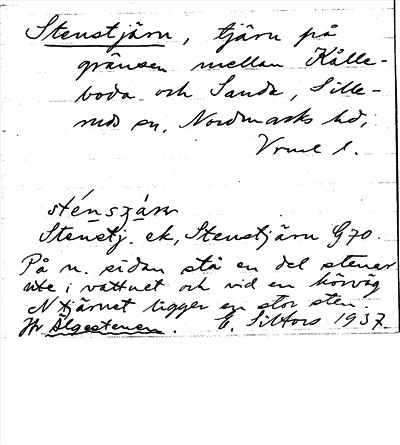 Stenstjärn, tjärn på
gränsen mellan Kålle-
boda och Sanda, Sille-
ruds sn, Nordmarks hd,
Vrml l.
Stenstj. ek, Stenstjärn G70.
På n. sidan stå en del stenar
ute i vattnet och vid en körväg
N tjärnet ligger en stor sten.
Älgestenen. E. Silfors 1937